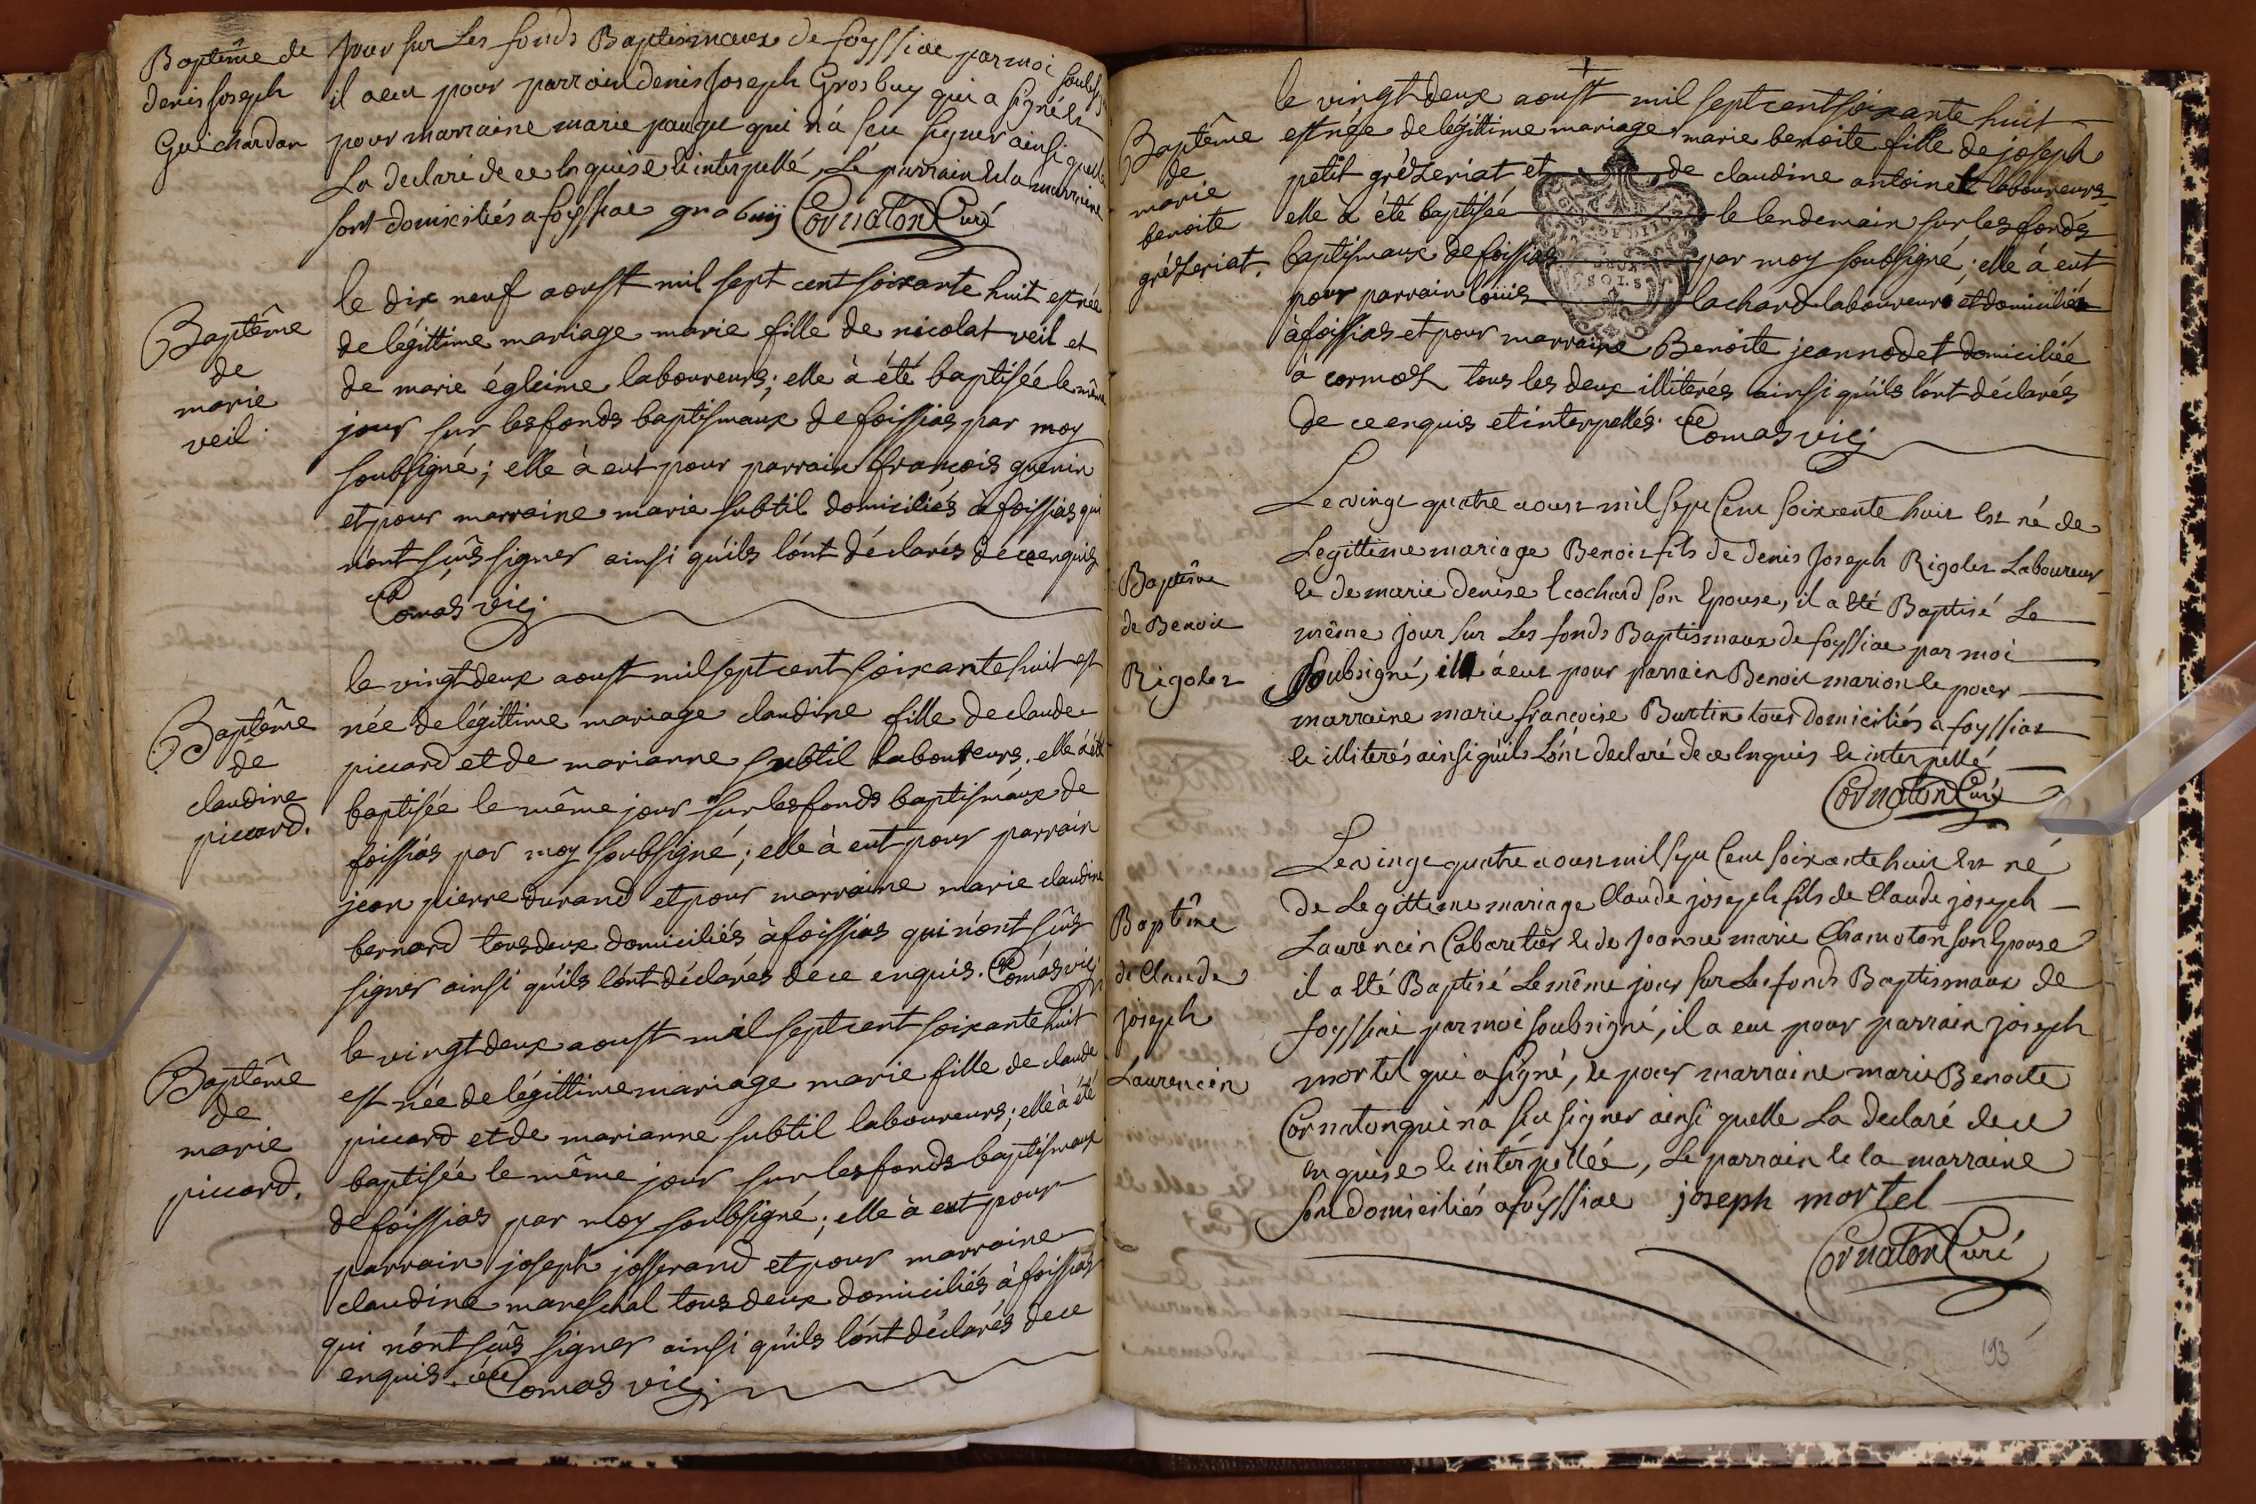 Baptême de
denis joseph
Guichardan
jour sur Les fonds Baptismaux de foyssiac par moi soubsigné
il a eu pour parrain denis Joseph Grosbuy qui a signé et
pour marraine marie paugu qui n'a scu signer ainsi quelle
La declaré de ce Enquise et interpellé, Le parrain et la marraine
sont domiciliés a foyssiac grobuij Cornaton Curé
Baptême
de
marie
veil.
le dix neuf aoust mil sept cent soixante huit est née
de légittime mariage marie fille de nicolat veil et
de marie égleime laboureurs; elle à été baptisée le même
jour sur les fonds baptismaux de foissias par moy
soubsigné; elle à eut pour parrain françois guenin
et pour marraine marie subtil domiciliés à foissias qui
n'ont sçûs signer ainsi qu'ils l'ont déclarés de ce enquis
Comas vic;
Baptême
de
claudine
piccard.
le vingt deux aoust mil sept cent soixante huit est
née de légittime mariage claudine fille de claude
piccard et de marianne subtil laboureurs; elle à été
baptisée le même jour sur les fonds baptismaux de
foissias par moy soubsigné; elle à eut pour parrain
jean pierre durand et pour marraine marie claudine
bernard tous deux domiciliés à foissias qui n'ont sçûs
signer ainsi qu'ils l'ont déclarés de ce enquis. Comas vic;
Baptême
de
marie
piccard.
le vingt deux aoust mil sept cent soixante huit
est née de légittime mariage marie fille de claude
piccard et de marianne subtil laboureurs; elle à été
baptisée le même jour sur les fonds baptismaux
de foissias par moy soubsigné; elle à eut pour
parrain joseph josserand et pour marraine
claudine mareschal tous deux domiciliés à foissias
qui n'ont sçûs signer ainsi qu'ils l'ont déclarés de ce
enquis. Comas vic;
Baptême
de
marie
benoite
grézeriat.
le vingt deux aoust mil sept cent soixante huit
est née de légittime mariage marie benoite fille de joseph
petit grézeriat et de claudine antoinet laboureurs
elle à été baptisée le lendemain sur les fonds
baptismaux de foissias par moy soubsigné; elle à eut
pour parrain loüis lachard laboureur et domicilié
à foissias et pour marraine Benoite jeannodet domiciliée
à cormoz tous les deux illiterés ainsi qu'ils l'ont déclarés
de ce enquis et interpellés. Comas vic;
Baptême
de Benoit
Rigolet
Le vingt quatre aoust mil sept Cent soixante huit Est né de
Legittime mariage Benoit fils de denis Joseph Rigolet Laboureur
et de marie denise Lachard son Epouse, il a Eté Baptisé Le
même jour sur Les fonds Baptismaux de foyssiac par moi
soubsigné, il a eut pour parrain Benoit marion et pour
marraine marie francoise Burtin tous domiciliés a foyssiat
et illiterés ainsi qu'il L'ont declaré de ce Enquis et interpellé
Cornaton Curé
Baptême
de Claude
joseph
Laurencin
Le vingt quatre aoust mil sept Cent soixante huit Est né
de Legittime mariage Claude joseph fils de Claude joseph
Laurencin Cabaretier et de Jeanne marie Chamoton son Epouse
il a Eté Baptisé Le même jour sur Les fonds Baptismaux de
foyssiac par moi soubsigné, il a eut pour parrain joseph
mortel qui a signé, et pour marraine marie Benoite
Cornaton qui n'a scu signer ainsi quelle La declaré de ce
Enquise et interpellée, Le parrain et la marraine
sont domiciliés a foyssiac joseph mortel
Cornaton Curé
193